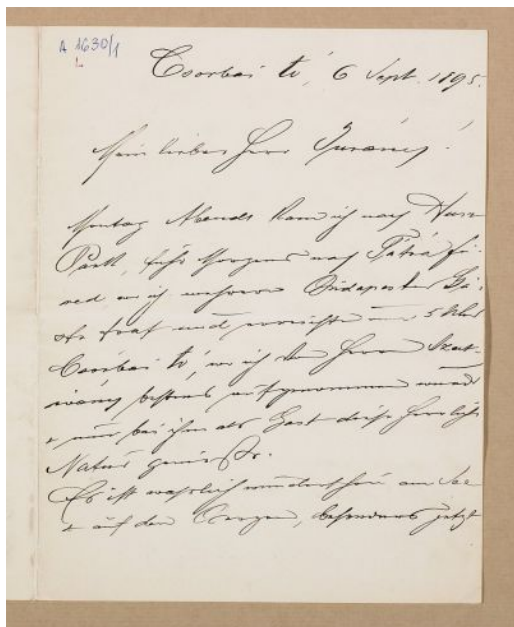 A 1630/1
L
Csorbai tó, 6 Sept. 1895.
Mein lieber Herr Jurányi!
Montag Abends kam ich nach Husz
Park, früh Morgens nach Tátrafü-
red, wo ich mehrere Budapester Gä-
ste traf und erreichte um 5 Uhr
Csorbai tó, wo ich von Herrn Szent-
iványi bestens aufgenommen wurde
& nun bei ihm als Gast diese herrliche
Natur genieße.
Es ist wahrlich wunderschön am See
& auf den Bergen, besonders jetzt